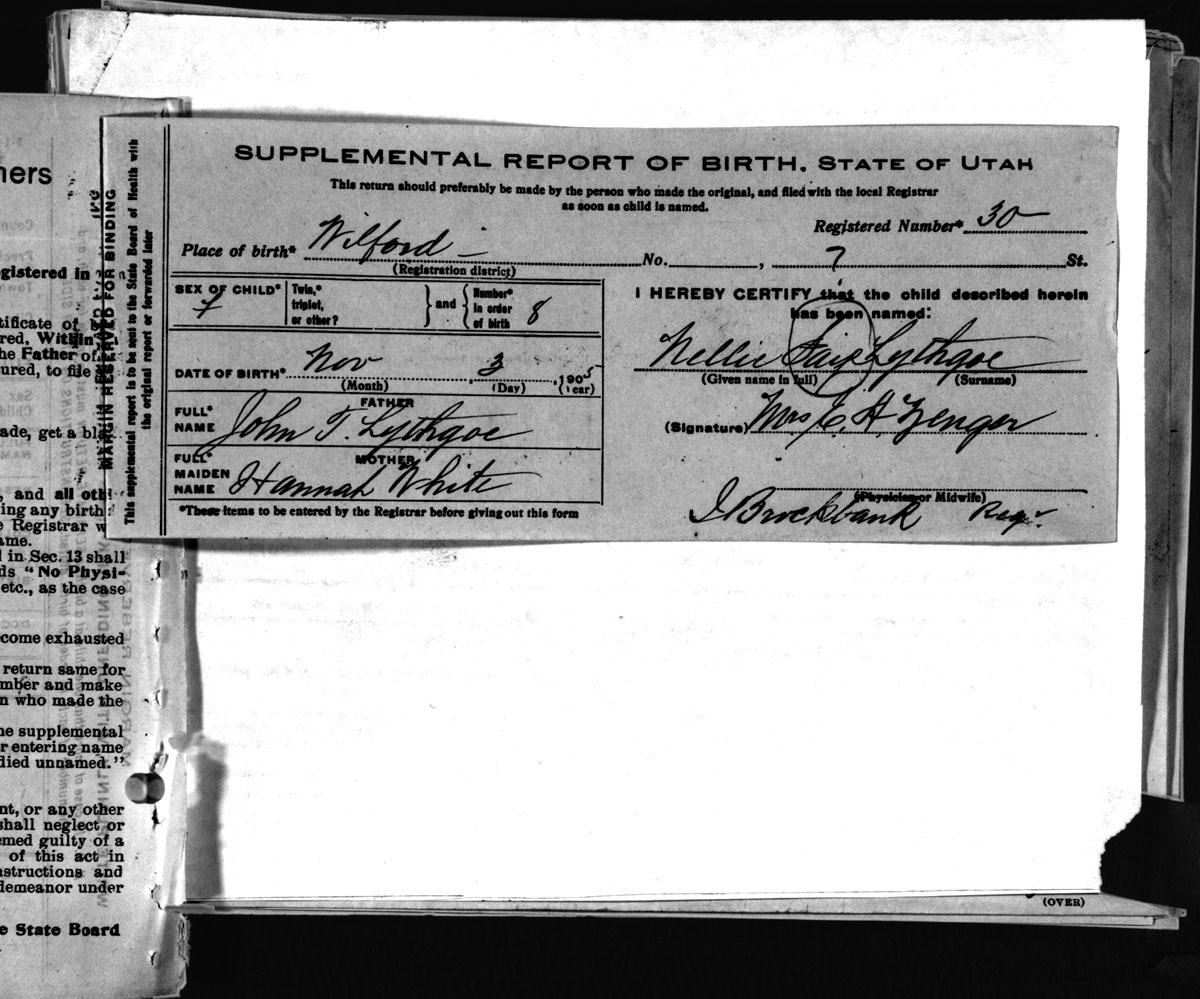 ners
gistered in
tificate of
red, Within
he Father of
ured, to file
ade, get a bla
, and all oth
ing any birth
e Registrar w
ame.
l in Sec. 13 shall
ds "No Physi-
etc., as the case
come exhausted
return same for
mber and make
n who made the
ne supplemental
r entering name
died unnamed."
nt, or any other
shall neglect or
emed guilty of a
of this act in
nstructions and
demeanor under
e State Board
MARGIN RESERVED FOR BINDING
This supplemental report is to be sent to the State Board of Health with
the original report or forwarded later
SUPPLEMENTAL REPORT OF BIRTH. STATE OF UTAH
This return should preferably be made by the person who made the original, and filed with the local Registrar
as soon as child is named.
Registered Number* 30
Place of birth* Wilford - No. , ? St.
(Registration district)
SEX OF CHILD* f
Twin,*
triplet,
or other?
and
Number*
in order
of birth 8
DATE OF BIRTH* Nov 3, 1905
(Month) (Day) (Year)
FATHER
FULL*
NAME John T. Lythgoe
MOTHER
FULL*
MAIDEN
NAME Hannah White
*These items to be entered by the Registrar before giving out this form
I HEREBY CERTIFY that the child described herein
has been named:
Nellie Fair Lythgoe
(Given name in full) (Surname)
(Signature) Mrs C. H Zenger
(Physician or Midwife)
J Brockbank Regr.
(OVER)